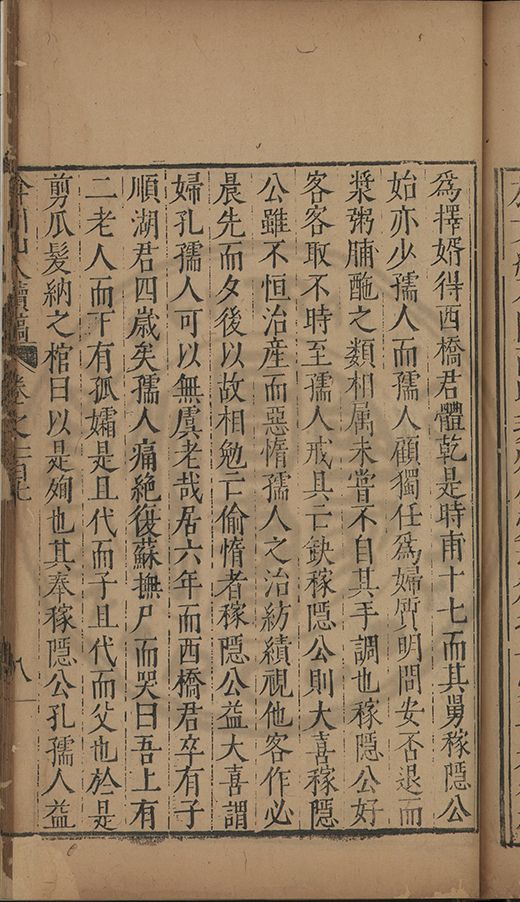 為擇婿得西橋君體乾是時甫十七而其舅稼隱公
始亦少孺人而孺人顧獨任為婦質明問安否退而
漿粥脯酏之類相属未嘗不自其手調也稼隱公好
客客取不時至孺人戒具亡缺稼隱公則大喜稼隱
公雖不恒治產而惡惰孺人之治紡績視他客作必
晨先而夕後以故相勉亡偷惰者稼隱公益大喜謂
婦孔孺人可以無虞老哉居六年而西橋君卒有子
順湖君四歲矣孺人痛絶復蘇撫尸而哭曰吾上有
二老人而下有孤孀是且代而子且代而父也於是
剪爪髮納之棺曰以是殉也其奉稼隱公孔孺人益
弇州山人續稿 卷之一百七 八